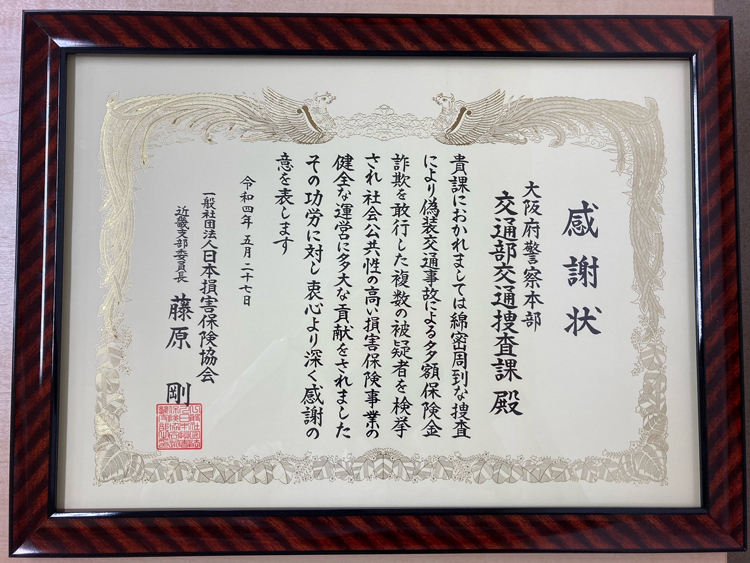 感謝状
大阪府警察本部
交通部交通捜査課 殿
貴課におかれましては綿密周到な捜査
により偽装交通事故による多額保険金
詐欺を敢行した複数の被疑者を検挙
され 社会公共性の高い損害保険事業の
健全な運営に多大な貢献をされました
その功労に対し 衷心より深く感謝の
意を表します
令和四年 五月二十七日
一般社団法人日本損害保険協会
近畿支部委員長 藤原 剛